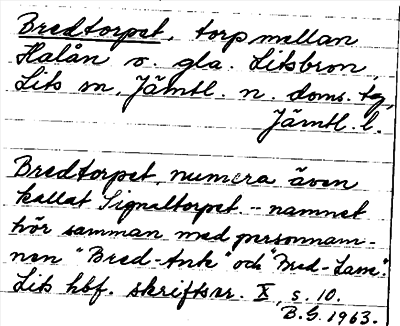 Bredtorpet, torp mellan
Halån o. gla. Litsbron,
Lits sn, Jämtl. n. doms. tg,
Jämtl. l.
Bredtorpet, numera även
kallat Signaltorpet. - namnet
hör samman med personnam-
nen "Bred-Ante" och "Bred-Lasse".
Lits hbf. skriftser. X, s. 10.
B.G. 1963.